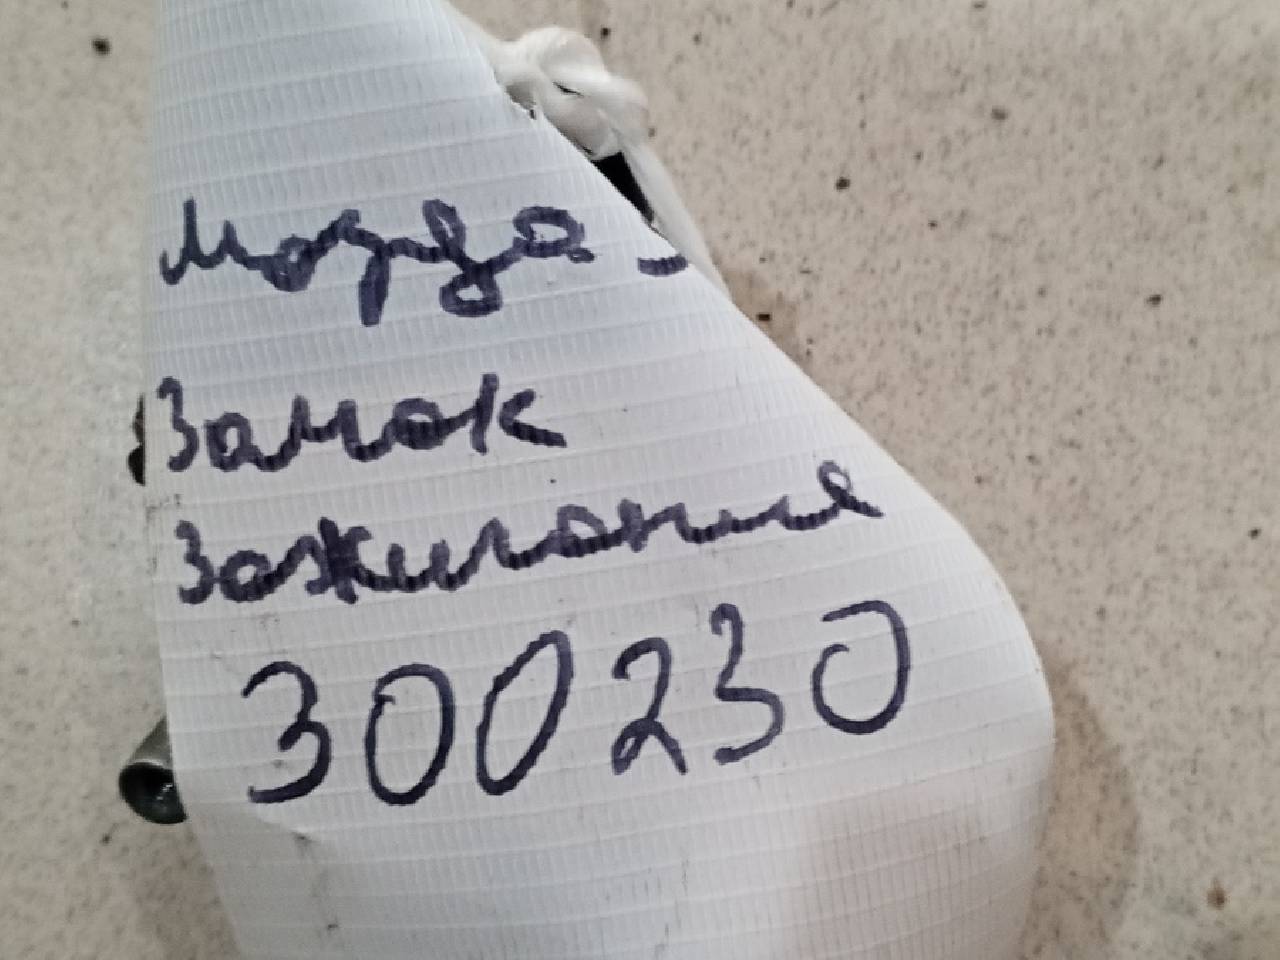 Мазда -
Замок
Зажигания
300230